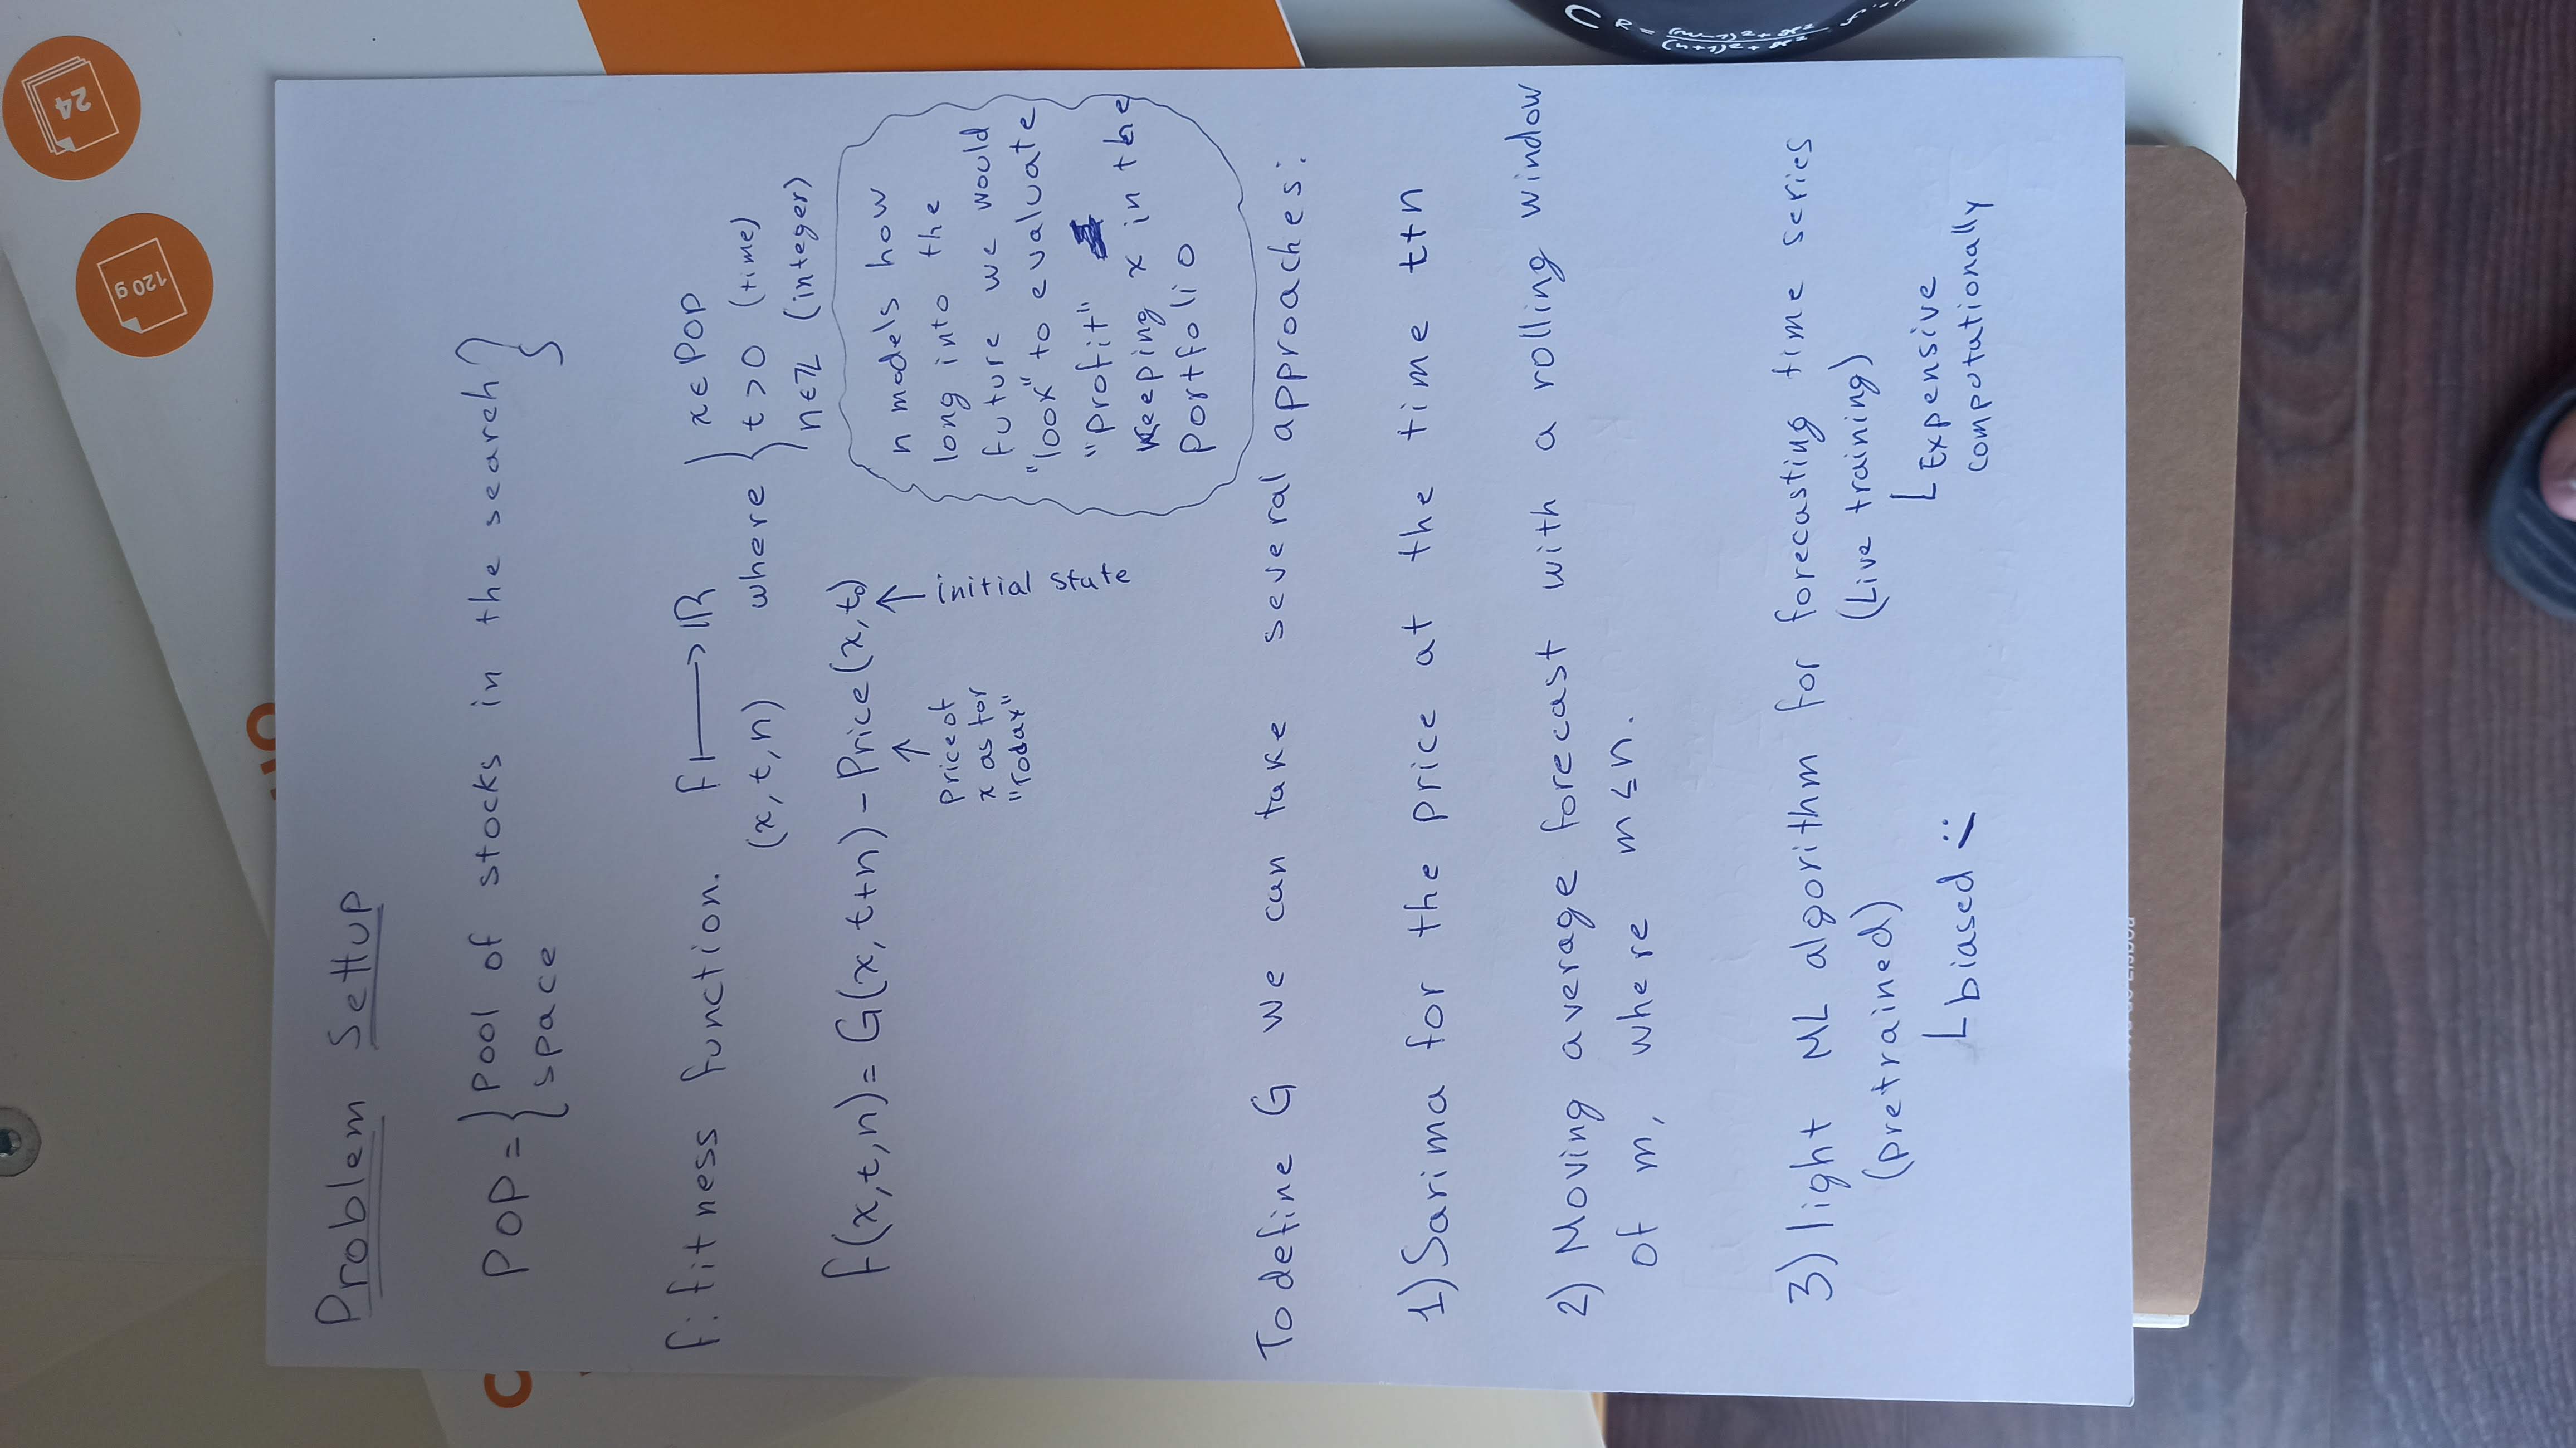 24
120 g
Problem Settup
POP = { Pool of stocks in the search
space }
f: fitness function. f ⟼ ℝ
(x, t, n) where { x ∈ POP
t > 0 (time)
n ∈ ℤ (integer)
f(x,t,n) = G(x, t+n) - Price(x, t₀)
↑
Price of
x as for
"Today"
↑
initial state
n models how
long into the
future we would
"look" to evaluate
"profit"
Keeping x in the
Portfolio
To define G we can take several approaches:
1) Sarima for the price at the time t+n
2) Moving average forecast with a rolling window
of m, where m ≤ n.
3) light ML algorithm for forecasting time series
(pretrained) (Live training)
└ biased :( └ Expensive
computationally